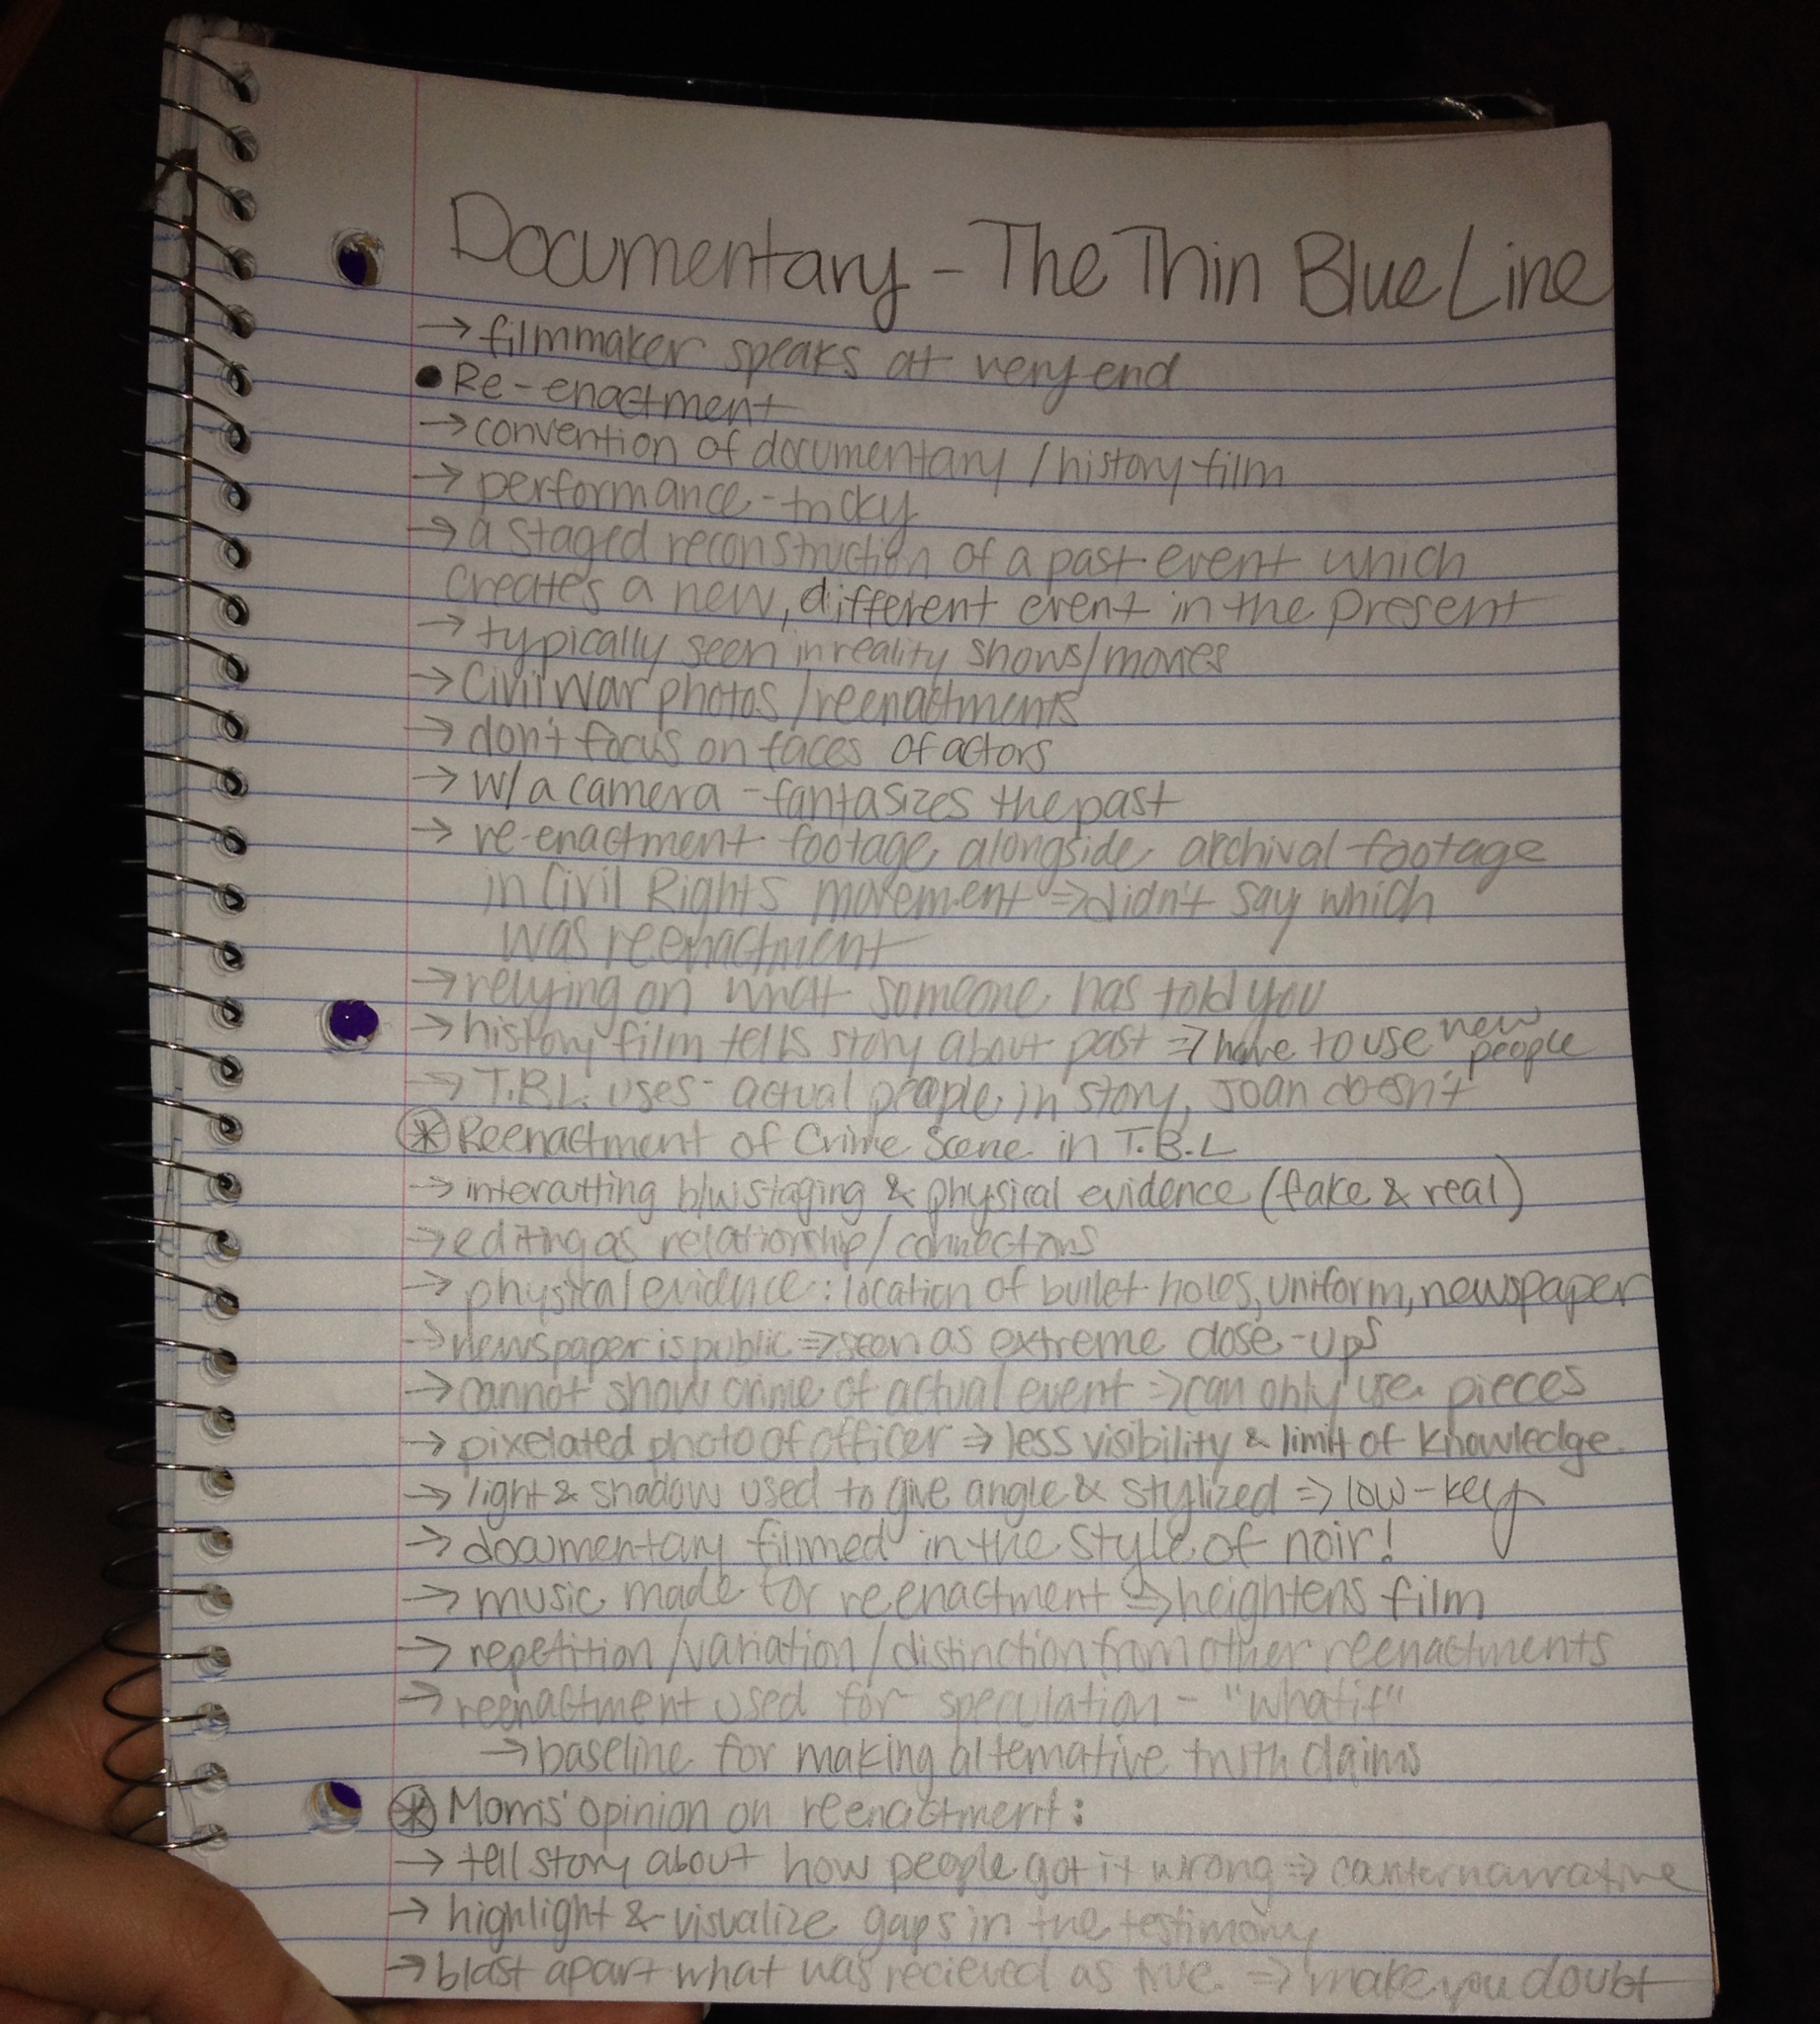 Documentary - The Thin Blue Line
→ filmmaker speaks at very end
• Re-enactment
→ convention of documentary / history film
→ performance - tricky
→ a staged reconstruction of a past event which
creates a new, different event in the present
→ typically seen in reality shows/movies
→ Civil War photos / reenactments
→ don't focus on faces of actors
→ w/ a camera - fantasizes the past
→ re-enactment footage alongside archival footage
in Civil Rights movement ⇒ didn't say which
was reenactment
→ relying on what someone has told you
→ history film tells story about past ⇒ have to use new people
→ T.B.L. uses actual people in story, Joan doesn't
⊛ Reenactment of Crime Scene in T.B.L
→ intercutting b/w staging & physical evidence (fake & real)
→ editing as relationship/connections
→ physical evidence: location of bullet holes, uniform, newspaper
→ newspaper is public ⇒ seen as extreme close-ups
→ cannot show crime of actual event ⇒ can only use pieces
→ pixelated photo of officer ⇒ less visibility & limit of knowledge
→ light & shadow used to give angle & stylized ⇒ low-key
→ documentary filmed in the style of noir!
→ music made for reenactment ⇒ heightens film
→ repetition/variation/distinction from other reenactments
→ reenactment used for speculation - "what if"
→ baseline for making alternative truth claims
⊛ Morris' opinion on reenactment:
→ tell story about how people got it wrong ⇒ counternarrative
→ highlight & visualize gaps in the testimony
→ blast apart what was recieved as true ⇒ make you doubt